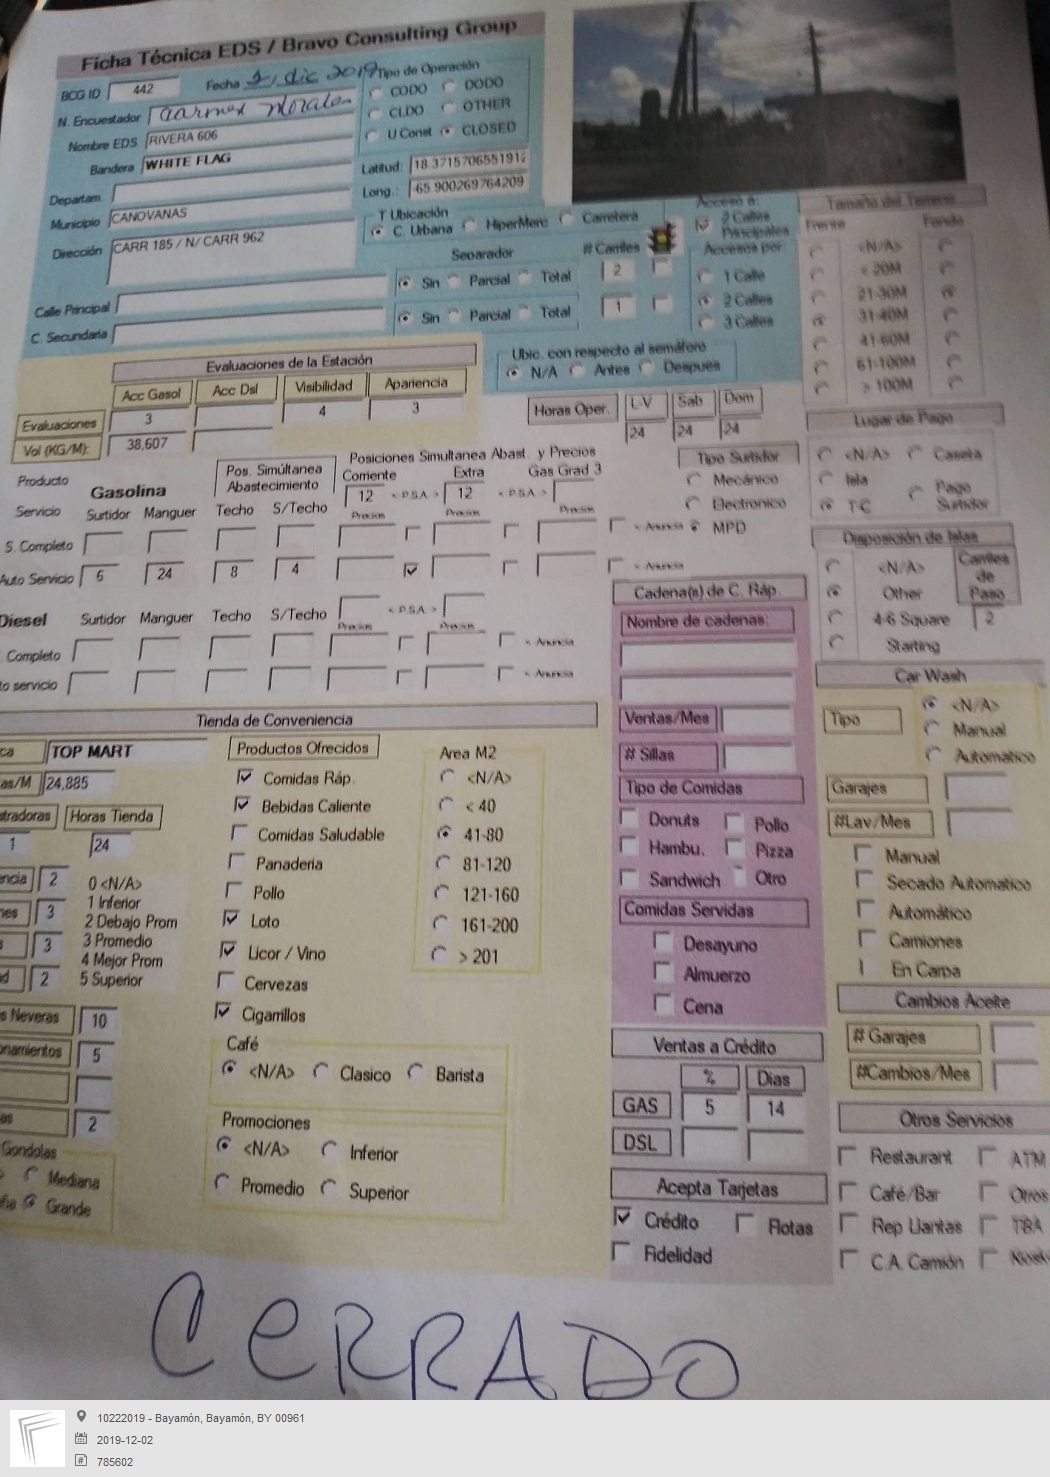 Ficha Técnica EDS / Bravo Consulting Group
BCG ID 442 Fecha 1, dic 2019
N. Encuestador Carmen Morales
Nombre EDS RIVERA 606
Bandera WHITE FLAG
Departam.
Municipio CANOVANAS
Dirección CARR 185 / N/ CARR 962
Calle Principal
C. Secundaria
Tipo de Operación
CODO DODO
CLDO OTHER
U Const CLOSED
Latitud: 18.371570655191
Long.: -65.900269764209
T Ubicación
C. Urbana HiperMerc Carretera
Separador # Carriles
Sin Parcial Total 2
Sin Parcial Total 1
Acceso a:
2 Calles Principales
Accesos por:
1 Calle
2 Calles
3 Calles
Ubic. con respecto al semáforo
N/A Antes Despues
Tamaño del Terreno
Frente Fondo
<N/A>
< 20M
21-30M
31-40M
41-60M
61-100M
> 100M
Evaluaciones de la Estación
Acc Gasol Acc Dsl Visibilidad Apariencia
Evaluaciones 3 4 3
Vol (KG/M): 38,607
Horas Oper. L-V Sab Dom
24 24 24
Lugar de Pago
<N/A> Caseta
Isla Pago Surtidor
T-C
Producto Gasolina
Pos. Simúltanea Abastecimiento
Posiciones Simultanea Abast. y Precios
Corriente Extra Gas Grad 3
12 < P.S.A > 12 < P.S.A >
Servicio Surtidor Manguer Techo S/Techo Precios Precios Precios
S. Completo < Anuncia
Auto Servicio 6 24 8 4 < Anuncia
Tipo Surtidor
Mecánico
Electronico
MPD
Disposición de Islas
<N/A>
Other
4-6 Square
Starting
Carriles de Paso
2
Diesel Surtidor Manguer Techo S/Techo < P.S.A >
Precios Precios
Completo < Anuncia
to servicio < Anuncia
Cadena(s) de C. Ráp.
Nombre de cadenas:
Ventas/Mes
# Sillas
Tipo de Comidas
Donuts Pollo
Hambu. Pizza
Sandwich Otro
Comidas Servidas
Desayuno
Almuerzo
Cena
Car Wash
Tipo
<N/A>
Manual
Automatico
Garajes
#Lav/Mes
Manual
Secado Automatico
Automático
Camiones
En Carpa
Cambios Aceite
# Garajes
#Cambios/Mes
Tienda de Conveniencia
ca TOP MART
as/M 24,885
stradoras Horas Tienda
1 24
encia 2
nes 3
s 3
d 2
0 <N/A>
1 Inferior
2 Debajo Prom
3 Promedio
4 Mejor Prom
5 Superior
s Neveras 10
onamientos 5
as 2
Gondolas
Mediana
Grande
Productos Ofrecidos
Comidas Ráp.
Bebidas Caliente
Comidas Saludable
Panaderia
Pollo
Loto
Licor / Vino
Cervezas
Cigarrillos
Area M2
<N/A>
< 40
41-80
81-120
121-160
161-200
> 201
Café
<N/A> Clasico Barista
Promociones
<N/A> Inferior
Promedio Superior
Ventas a Crédito
% Dias
GAS 5 14
DSL
Acepta Tarjetas
Crédito Flotas
Fidelidad
Otros Servicios
Restaurant ATM
Café/Bar Otros
Rep Llantas TBA
C.A. Camión Kiosk
CERRADO
10222019 - Bayamón, Bayamón, BY 00961
2019-12-02
785602